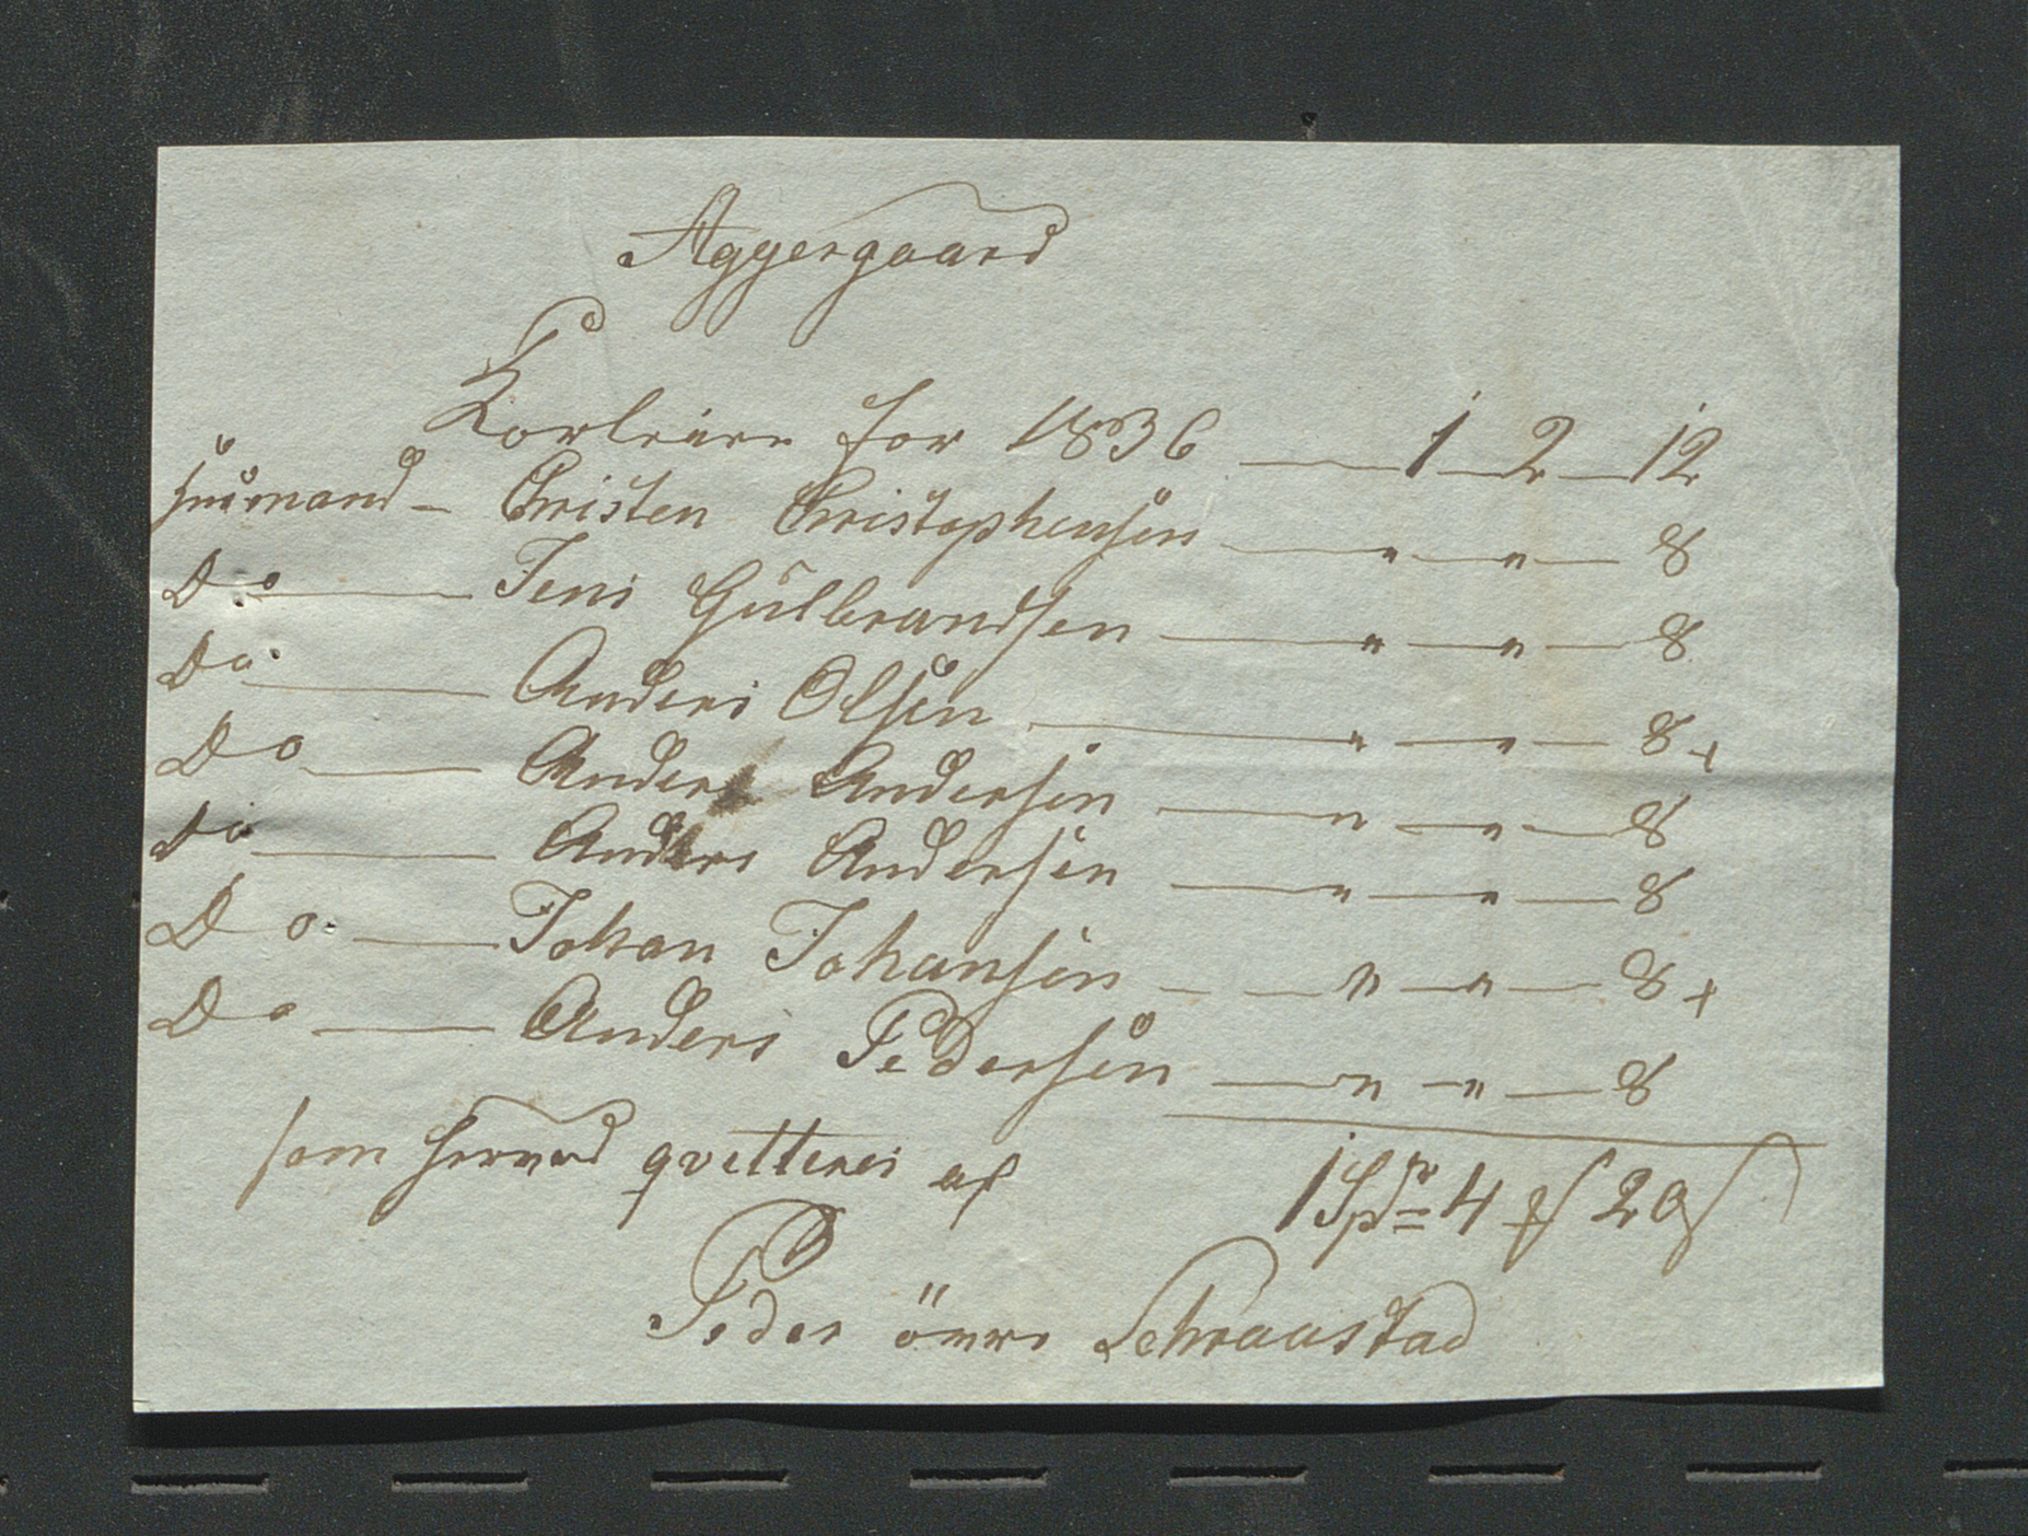 Aggergaard
for 1836 — 1 — 2 — 12
Huusmand — Christen Christophensen — " — " — 8
Do — Jens Gulbrandsen — " — " — 8
Do — Anders Olsen — " — " — 8 +
Do — Anders Andersen — " — " — 8
Do — Anders Andersen — " — " — 8
Do — Johan Johansen — " — " — 8 +
Do — Anders Pedersen — " — " — 8
som herved qvitteres af 1 Spd 4 ß 20 ß
Peder öwre Schraastad